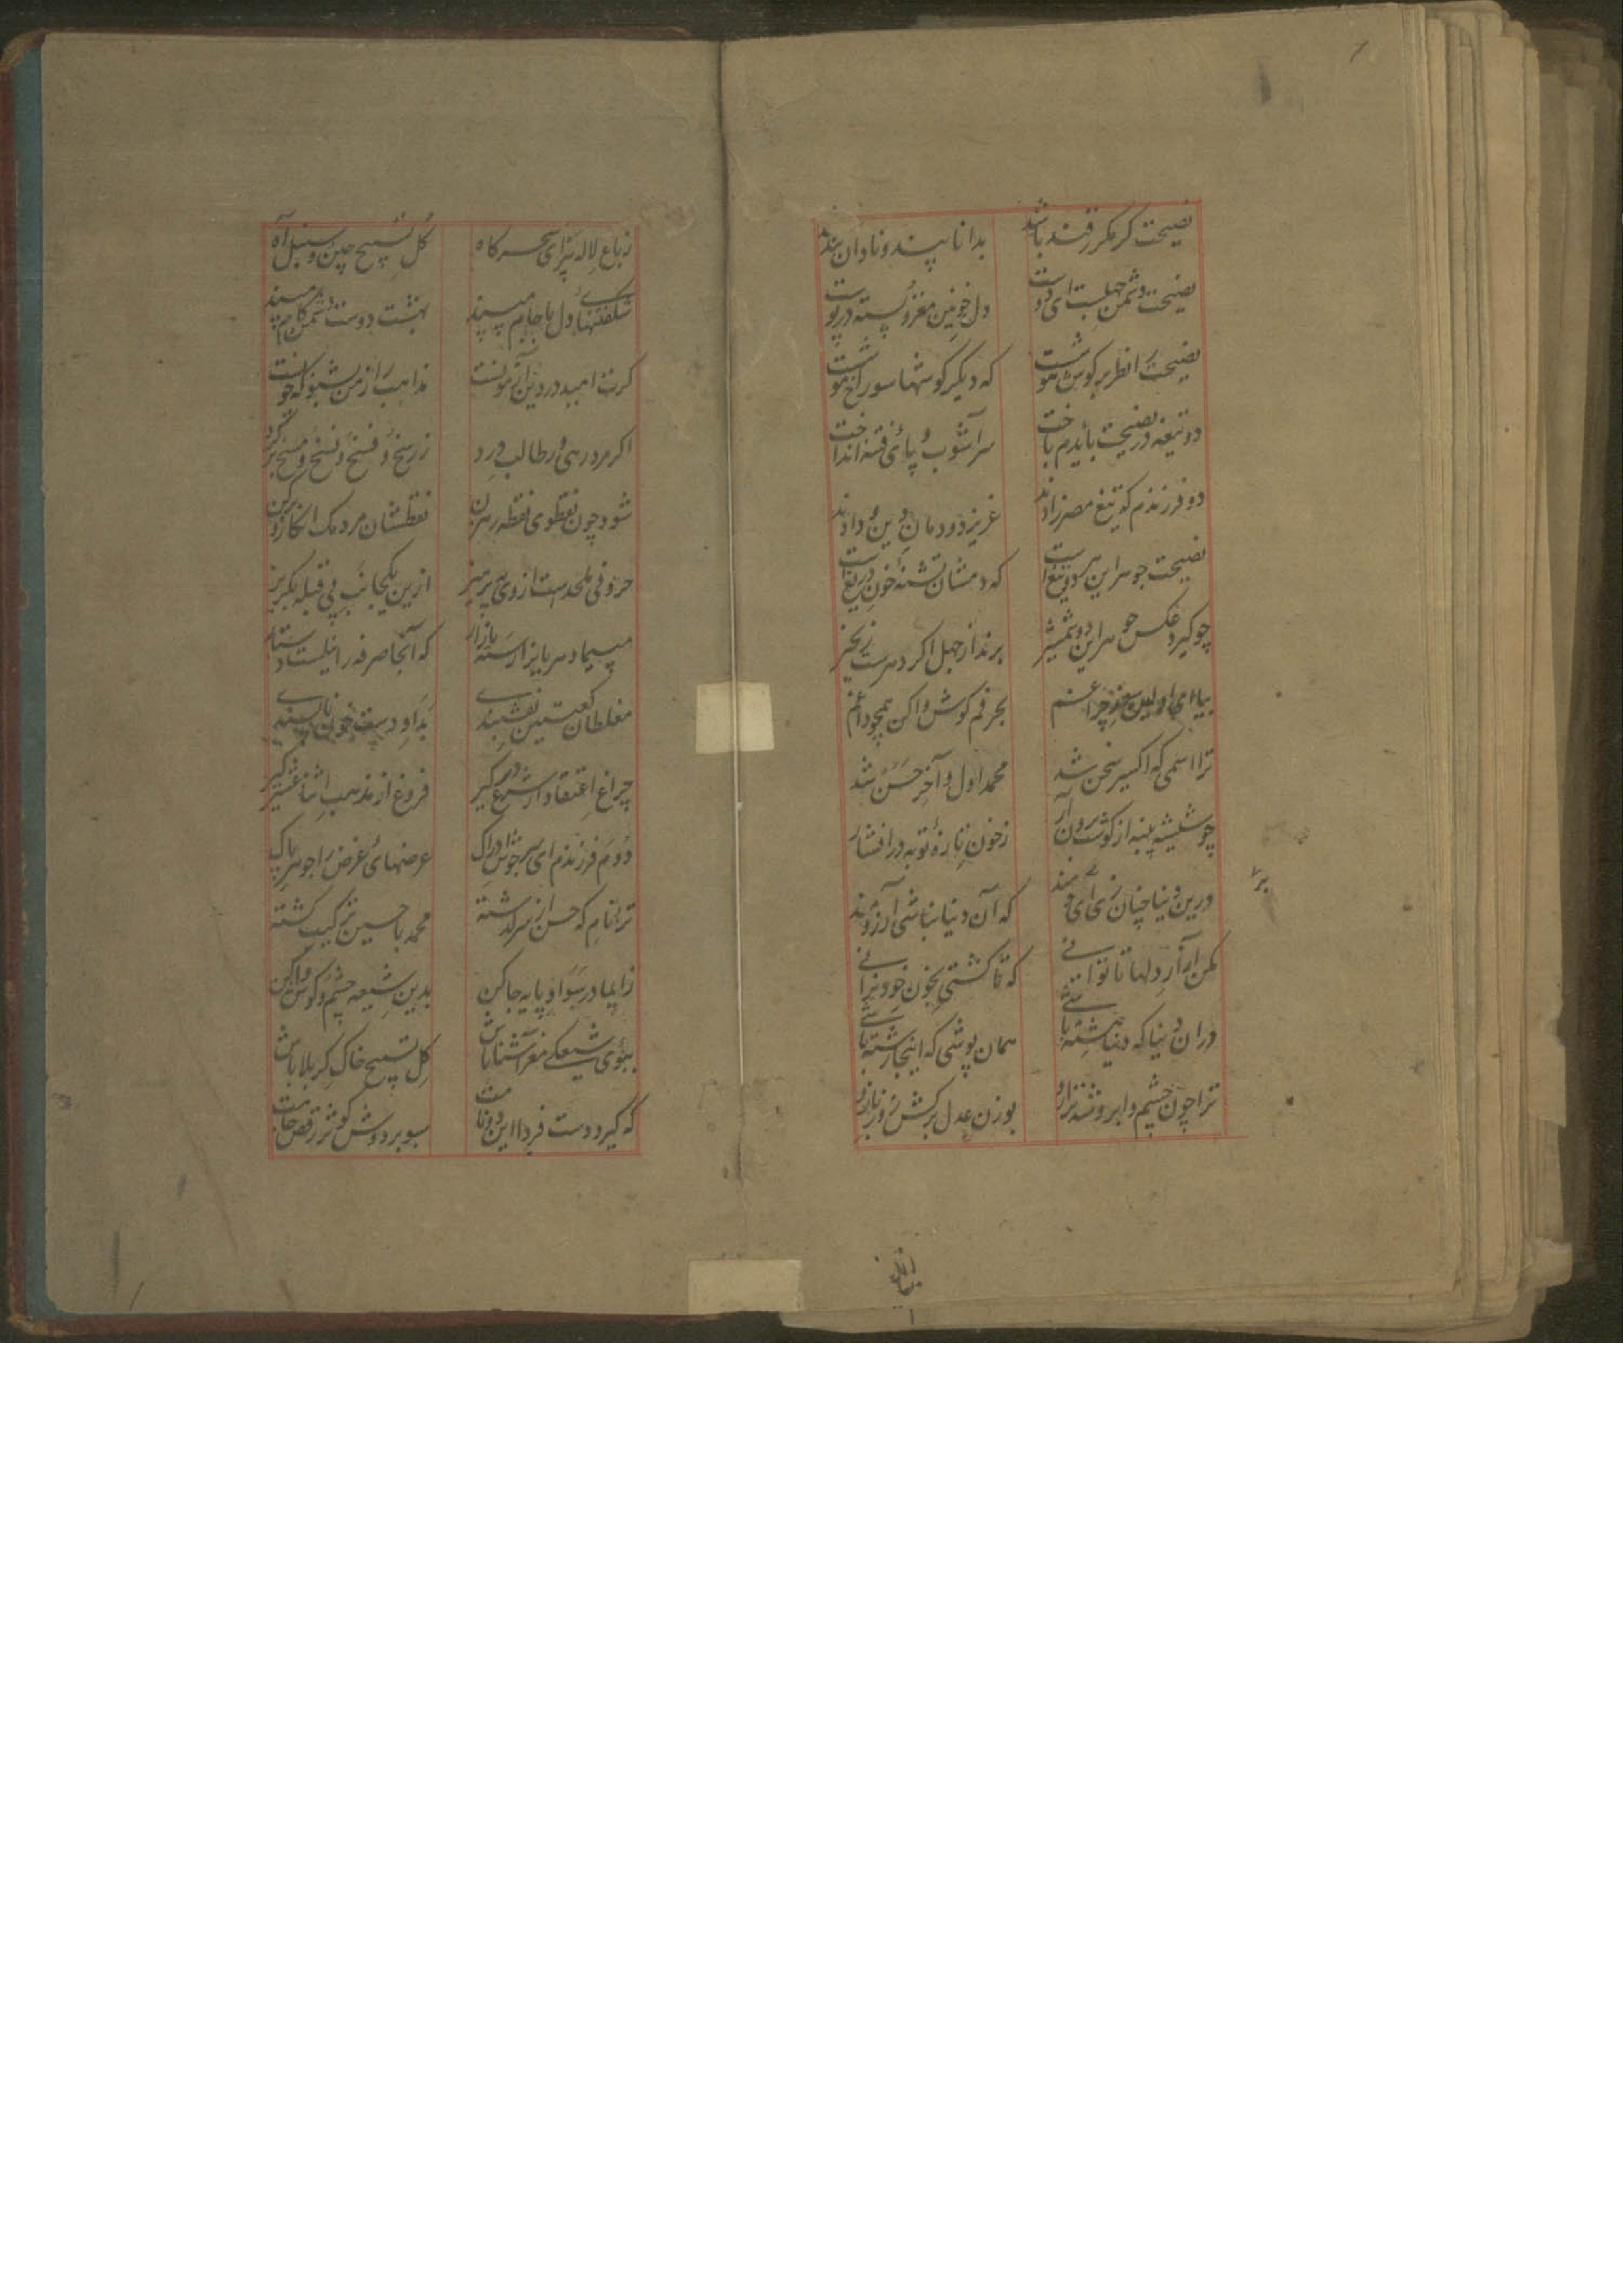 نصیحت کر مکرر قند باشد بدانا پند و نادان بند
نصیحت دشمن جهلست ای دوست دل خونین مغز و پسته در پوست
نصیحت را نظر بر گوش هوشست که دیگر گوشها سوراخ موشست
دو تیغه در نصیحت بایدم باخت سر آشوب و پای فتنه انداخت
دو فرزندم که تیغ مصرزادند عزیز دودمان دین و دادند
نصیحت جوهر این هر دو تیغ است که دمشان تشنه خون دریغ است
چو گیرد عکس جوهر این دو شمشیر برند از جهل اگر دهرست زنجیر
بیا ای اولین مغز چراغم بحرفم گوش وا کن همچو داغم
ترا اسمی که اکسیر سخن شد محمد اول و آخر حسن شد
چو شیشه پنبه از گوشت برون آر ز خون تازه توبه در افشار
درین دنیا چنان زی ای خردمند که آن دنیا نباشی آرزومند
مکن آزار دلها تا توانی که تا کشتی بخون خود نرانی
در ان دنیا که دنیا هشته باشی همان پوشی که اینجا رشته باشی
ترا چون چشم و ابرو شد ترازو بوزن عدل برکش زور بازو
ز باغ لاله تیرای سحرگاه گل تسبیح چین و سنبل آه
شکفتنهای دل با جام مپسند بهشت دوست دشمن کام مپسند
گرت امید در دین آبرونست مذاهب را ز من بشنو که چونست
اگر مرد رهی و طالب درد ز رسخ و فسخ و نسخ و مسخ برگرد
شود چون نقطوی نقطه رهزن نقطشان مردمک انکار و برکن
حروفی ملحدست از وی بپرهیز ازین یکجانب بی قبله بگریز
مپیما دهر با بازار که آنجا صرفه را نیست
مغلطان کعبتین نقشبندی بداو دست خون
چراغ اعتقاد از شرع در گیر فروغ از مذهب اثنا عشر گیر
دوم فرزندم ای سرجوش ادراک عرضهای غرض را جوهر پاک
ترا نام که حسن از سر گذشته محمد با حسین ترکیب گشته
ز ایما در سواد پایه جا کن بدین شیعه چشم و گوش وا کن
ببوی شیعگی مغز آشنا باش گل تسبیح خاک کربلا باش
که گیرد دست فردا این دو نامت سبو بر دوش کوثر رقص جامت